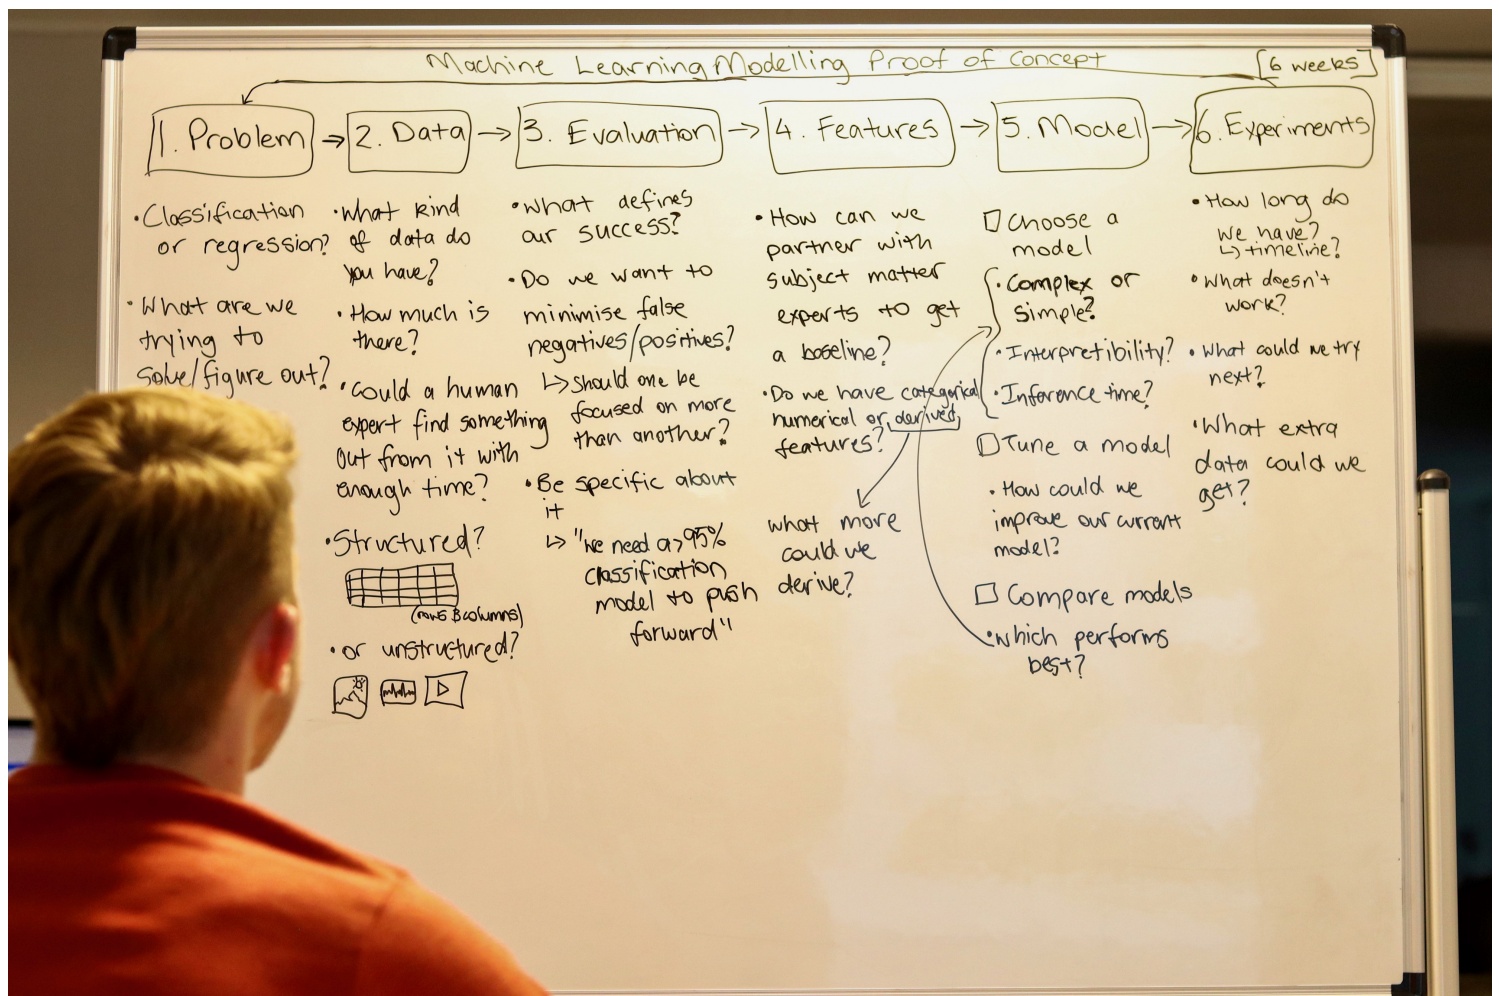 Machine Learning Modelling Proof of Concept
[6 weeks]
1. Problem
2. Data
3. Evaluation
4. Features
5. Model
6. Experiments
•Classification
or regression?
•What are we
trying to
solve/figure out?
•What kind
of data do
you have?
•How much is
there?
•Could a human
expert find something
out from it with
enough time?
•Structured?
(rows & columns)
•or unstructured?
•What defines
our success?
•Do we want to
minimise false
negatives/positives?
↳Should one be
focused on more
than another?
•Be specific about
it
↳ "We need a >95%
classification
model to push
forward"
•How can we
partner with
subject matter
experts to get
a baseline?
•Do we have categorical
numerical or derived
features?
what more
could we
derive?
Choose a
model
•Complex or
simple?
•Interpretibility?
•Inference time?
Tune a model
•How could we
improve our current
model?
Compare models
•which performs
best?
•How long do
we have?
↳timeline?
•What doesn't
work?
•What could we try
next?
•What extra
data could we
get?